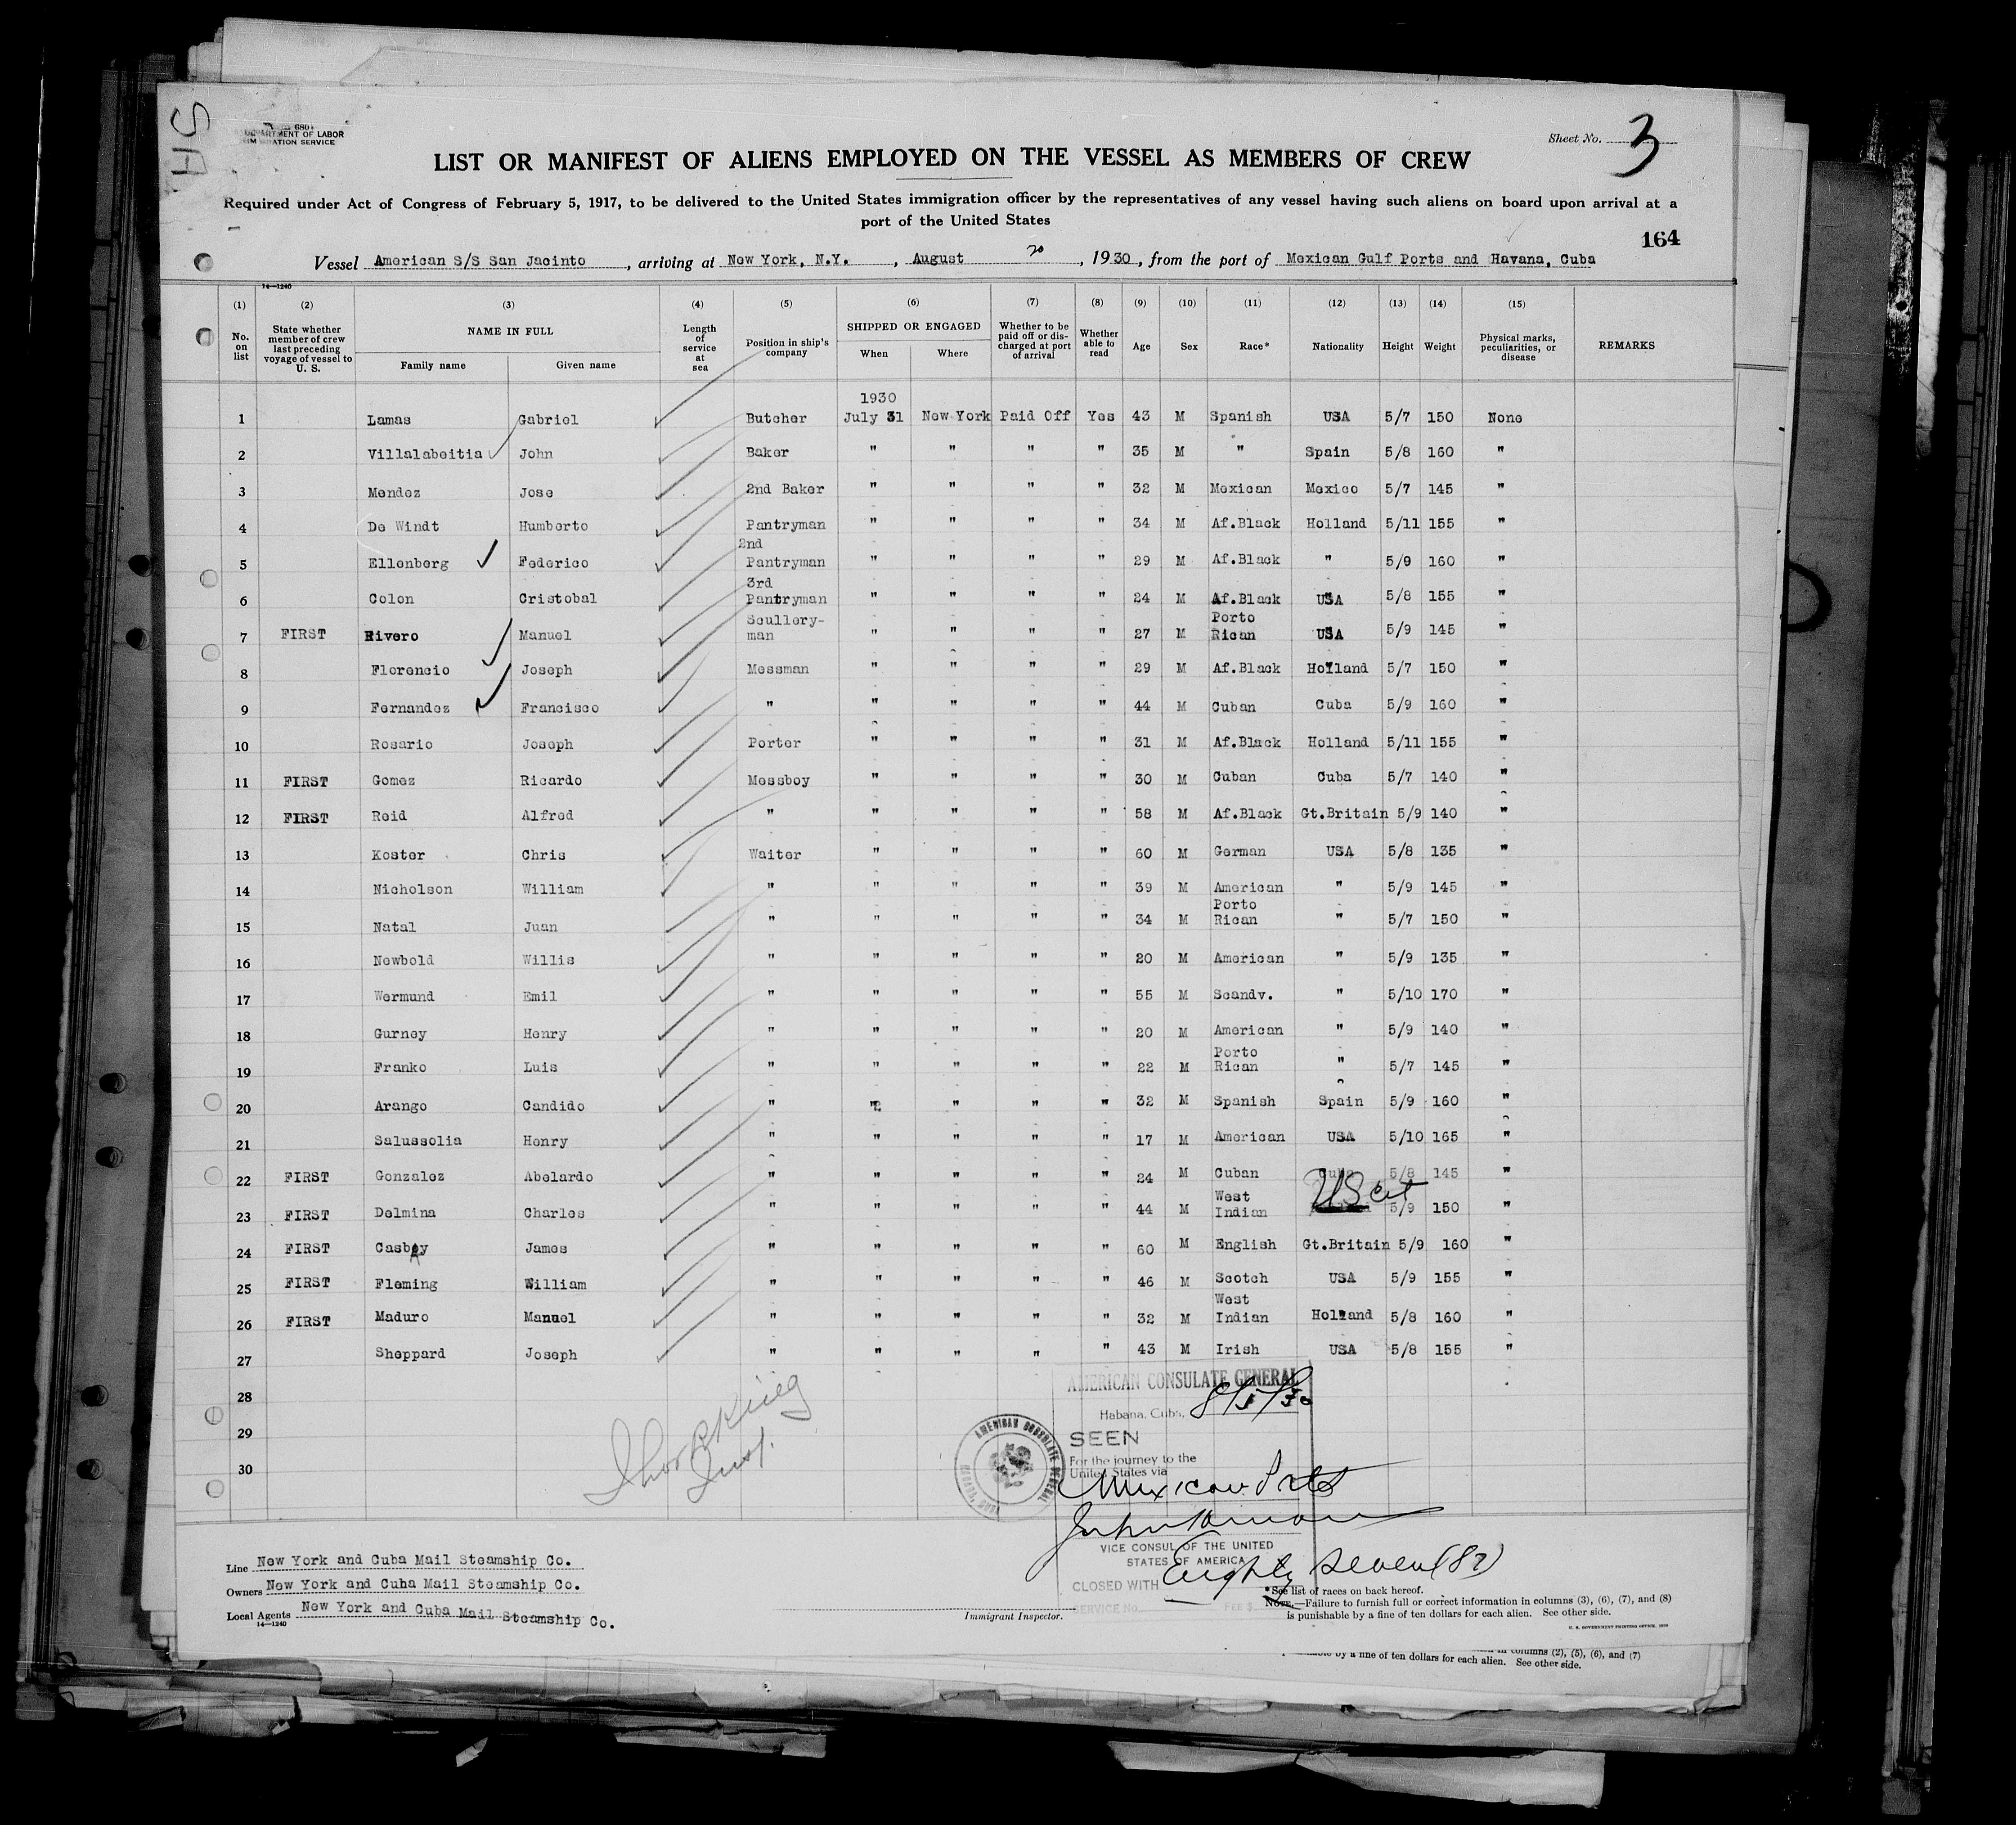 SH
680
DEPARTMENT OF LABOR
IMMIGRATION SERVICE
Sheet No. 3
LIST OR MANIFEST OF ALIENS EMPLOYED ON THE VESSEL AS MEMBERS OF CREW
Required under Act of Congress of February 5, 1917, to be delivered to the United States immigration officer by the representatives of any vessel having such aliens on board upon arrival at a
port of the United States
164
Vessel American S/S San Jacinto, arriving at New York, N.Y., August 20, 1930, from the port of Mexican Gulf Ports and Havana, Cuba
14—1240
(1) (2) (3) (4) (5) (6) (7) (8) (9) (10) (11) (12) (13) (14) (15)
No. on list State whether member of crew last preceding voyage of vessel to U. S. NAME IN FULL Family name Given name Length of service at sea Position in ship's company SHIPPED OR ENGAGED When Where Whether to be paid off or discharged at port of arrival Whether able to read Age Sex Race* Nationality Height Weight Physical marks, peculiarities, or disease REMARKS
1930
1 Lamas Gabriel Butcher July 31 New York Paid Off Yes 43 M Spanish USA 5/7 150 None
2 Villalabeitia John Baker " " " " 35 M " Spain 5/8 160 "
3 Mendez Jose 2nd Baker " " " " 32 M Mexican Mexico 5/7 145 "
4 De Windt Humberto Pantryman " " " " 34 M Af.Black Holland 5/11 155 "
5 Ellenberg Federico 2nd Pantryman " " " " 29 M Af.Black " 5/9 160 "
6 Colon Cristobal 3rd Pantryman " " " " 24 M Af.Black USA 5/8 155 "
7 FIRST Rivero Manuel Scullery-man " " " " 27 M Porto Rican USA 5/9 145 "
8 Florencio Joseph Messman " " " " 29 M Af.Black Holland 5/7 150 "
9 Fernandez Francisco " " " " " 44 M Cuban Cuba 5/9 160 "
10 Rosario Joseph Porter " " " " 31 M Af.Black Holland 5/11 155 "
11 FIRST Gomez Ricardo Messboy " " " " 30 M Cuban Cuba 5/7 140 "
12 FIRST Reid Alfred " " " " " 58 M Af.Black Gt.Britain 5/9 140 "
13 Koster Chris Waiter " " " " 60 M German USA 5/8 135 "
14 Nicholson William " " " " " 39 M American " 5/9 145 "
15 Natal Juan " " " " " 34 M Porto Rican " 5/7 150 "
16 Newbold Willis " " " " " 20 M American " 5/9 135 "
17 Wermund Emil " " " " " 55 M Scandv. " 5/10 170 "
18 Gurney Henry " " " " " 20 M American " 5/9 140 "
19 Franko Luis " " " " " 22 M Porto Rican " 5/7 145 "
20 Arango Candido " " " " " 32 M Spanish Spain 5/9 160 "
21 Salussolia Henry " " " " " 17 M American USA 5/10 165 "
22 FIRST Gonzalez Abelardo " " " " " 24 M Cuban Cuba 5/8 145 "
23 FIRST Delmina Charles " " " " " 44 M West Indian US cit 5/9 150 "
24 FIRST Casbey A James " " " " " 60 M English Gt.Britain 5/9 160 "
25 FIRST Fleming William " " " " " 46 M Scotch USA 5/9 155 "
26 FIRST Maduro Manuel " " " " " 32 M West Indian Holland 5/8 160 "
27 Sheppard Joseph " " " " " 43 M Irish USA 5/8 155 "
28
29
30
Insp.
AMERICAN CONSULATE GENERAL
Habana, Cuba, 8/5/30
SEEN
For the journey to the
United States via
Mexican Ports
VICE CONSUL OF THE UNITED
STATES OF AMERICA
CLOSED WITH Eighty seven (87)
SERVICE No. FEE $
AMERICAN CONSULATE GENERAL
Line New York and Cuba Mail Steamship Co.
Owners New York and Cuba Mail Steamship Co.
Local Agents New York and Cuba Mail Steamship Co.
14—1240
Immigrant Inspector.
*See list of races on back hereof.
NOTE.—Failure to furnish full or correct information in columns (3), (6), (7), and (8)
is punishable by a fine of ten dollars for each alien. See other side.
U. S. GOVERNMENT PRINTING OFFICE
in columns (2), (5), (6), and (7)
by a fine of ten dollars for each alien. See other side.